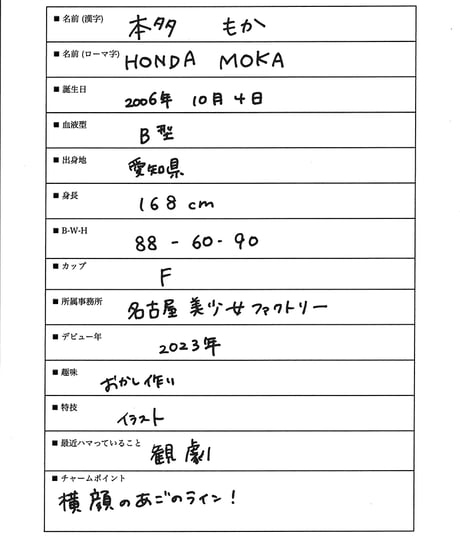 ■ 名前 (漢字) 本多 もか
■ 名前 (ローマ字) HONDA MOKA
■ 誕生日 2006年 10月 4日
■ 血液型 B型
■ 出身地 愛知県
■ 身長 168 cm
■ B-W-H 88 - 60 - 90
■ カップ F
■ 所属事務所 名古屋 美少女 ファクトリー
■ デビュー年 2023年
■ 趣味 おかし作り
■ 特技 イラスト
■ 最近ハマっていること 観劇
■ チャームポイント
横顔のあごのライン！